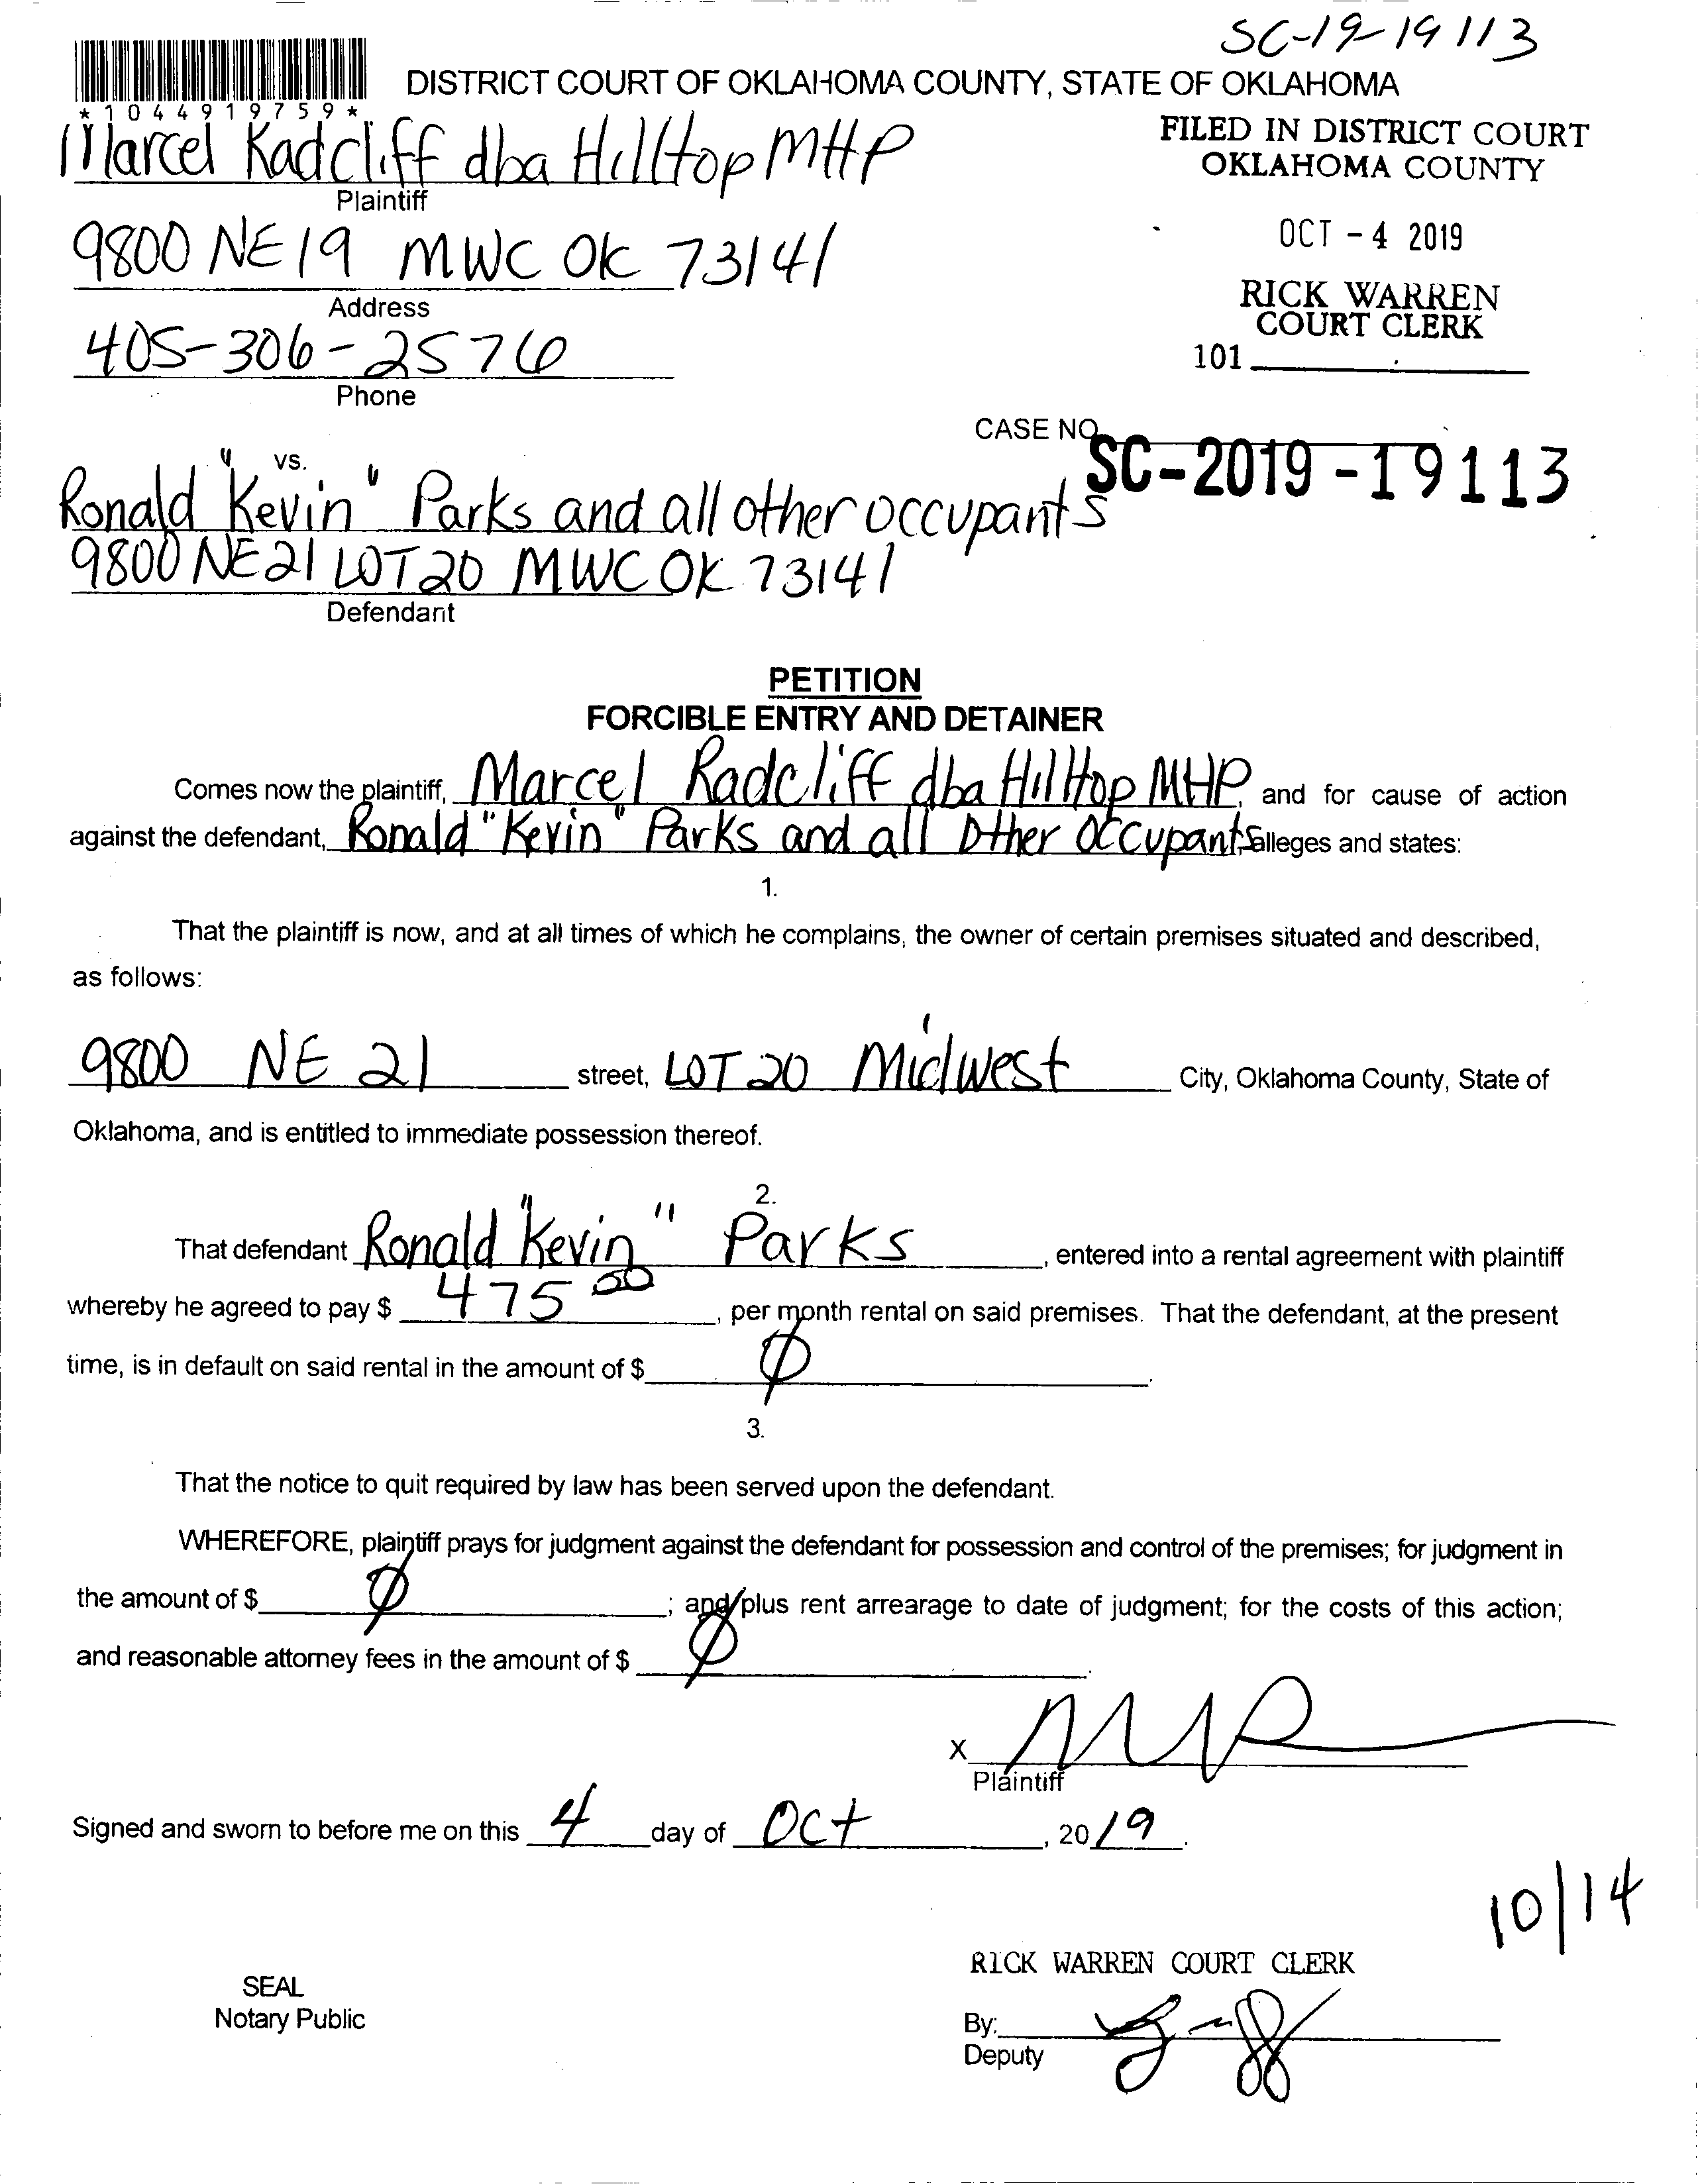 SC-19-19113
DISTRICT COURT OF OKLAHOMA COUNTY, STATE OF OKLAHOMA
*1044919759*
FILED IN DISTRICT COURT
OKLAHOMA COUNTY
Marcel Radcliff dba Hilltop MHP
Plaintiff
OCT - 4 2019
9800 NE 19 MWC OK 73141
Address
RICK WARREN
COURT CLERK
405-306-2576
101
Phone
CASE NO.
SC-2019-19113
vs.
Ronald "Kevin" Parks and all other occupants
9800 NE 21 LOT 20 MWC OK 73141
Defendant
PETITION
FORCIBLE ENTRY AND DETAINER
Comes now the plaintiff, Marcel Radcliff dba Hilltop MHP, and for cause of action
against the defendant, Ronald "Kevin" Parks and all Other Occupants, alleges and states:
1.
That the plaintiff is now, and at all times of which he complains, the owner of certain premises situated and described,
as follows:
9800 NE 21 street, LOT 20 Midwest City, Oklahoma County, State of
Oklahoma, and is entitled to immediate possession thereof.
2.
That defendant Ronald "Kevin" Parks, entered into a rental agreement with plaintiff
whereby he agreed to pay $ 475 00, per month rental on said premises. That the defendant, at the present
time, is in default on said rental in the amount of $ Ø.
3.
That the notice to quit required by law has been served upon the defendant.
WHEREFORE, plaintiff prays for judgment against the defendant for possession and control of the premises; for judgment in
the amount of $ Ø; and/plus rent arrearage to date of judgment; for the costs of this action;
and reasonable attorney fees in the amount of $ Ø.
X
Plaintiff
Signed and sworn to before me on this 4 day of Oct, 2019.
10/14
RICK WARREN COURT CLERK
SEAL
Notary Public
By:
Deputy